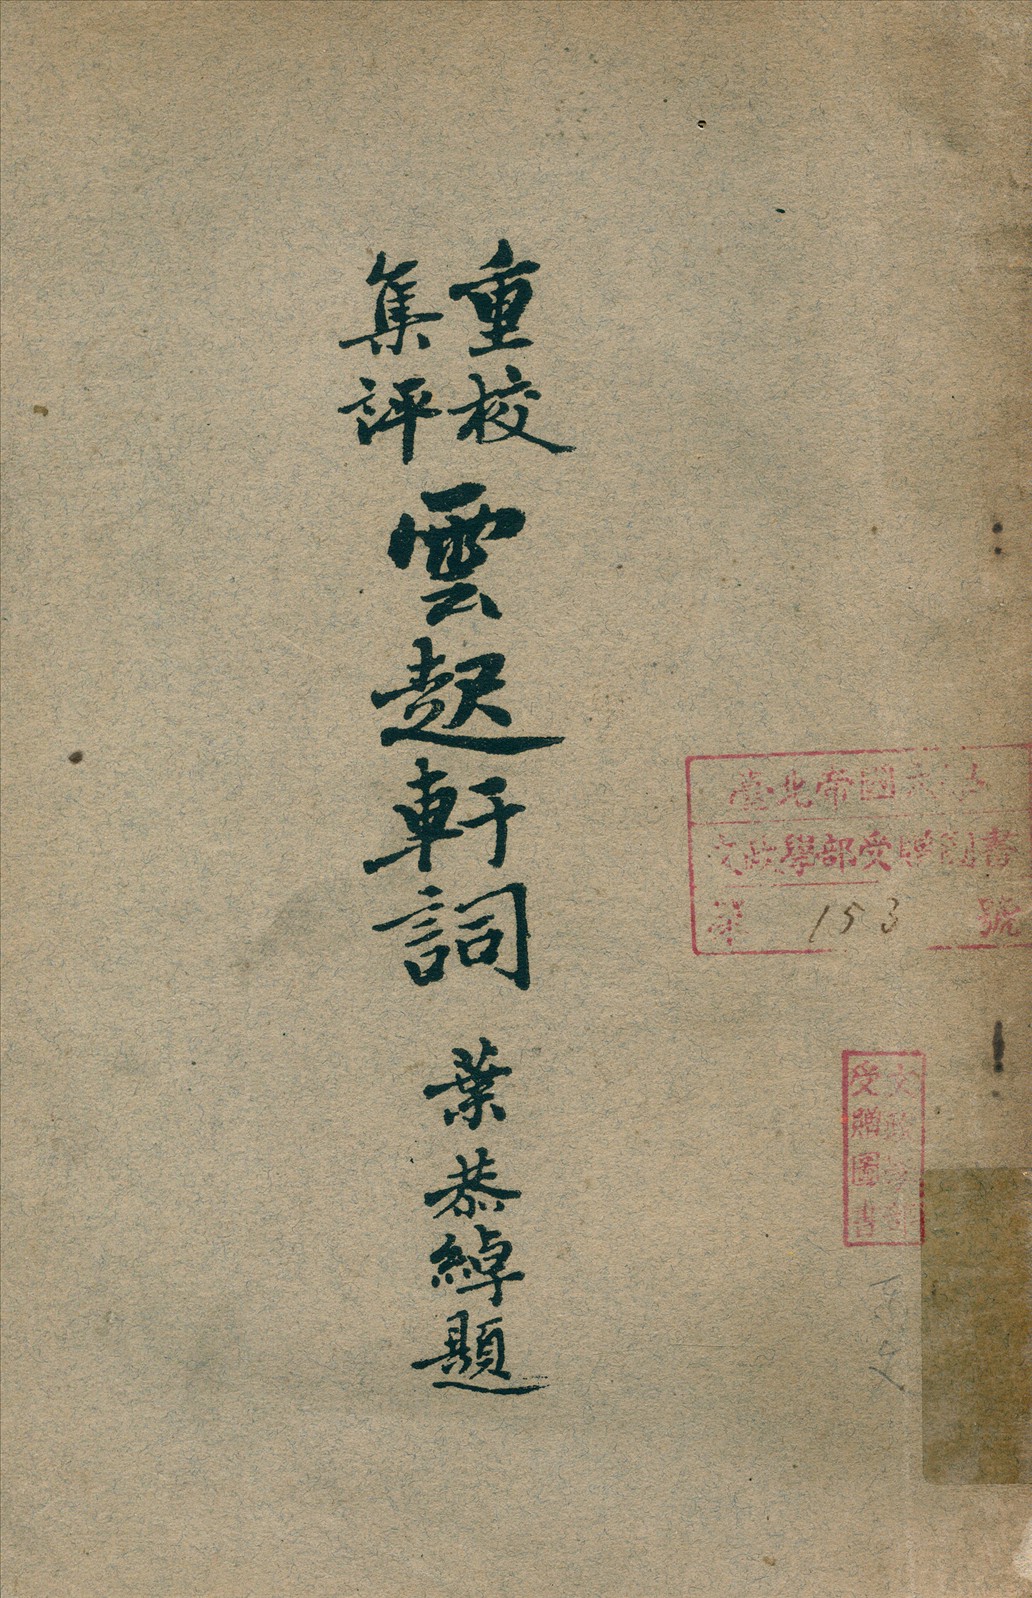 重校
集評
雲起軒詞
葉恭綽題
臺北帝國大學
文政學部受贈圖書
第 153 號
文政學部
受贈圖書